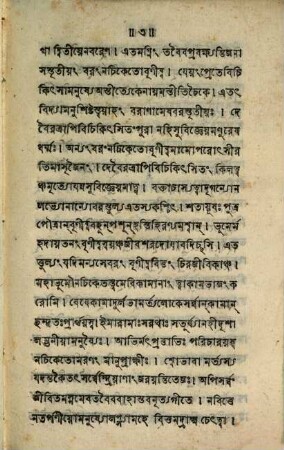 ॥ ৩ ॥
থা দ্বিতীয়েনবরেণ। এতমগ্নিং তবৈবপ্রবক্ষ্যন্তিজনা
সস্তৃতীয়ং বরংনচিকেতোবৃণীষ্ব। যেয়ংপ্রেতেবিচি
কিৎসামনুষ্যে অস্তীত্যেকেনায়মস্তীতিচৈকে। এতৎ
বিদ্যামনুশিষ্টস্ত্বয়াহং বরাণামেষবরস্তৃতীয়ঃ। দে
বৈরত্রাপিবিচিকিৎসিতংপুরা নহিসুবিজ্ঞেয়মণুরেষ
ধর্ম্মঃ। অন্যংবরংনচিকেতোবৃণীষ্বমামোপরোৎসীর
তিমাসৃজৈনং। দেবৈরত্রাপিবিচিকিৎসিতং কিলত্বঞ্চ
মৃত্যোযন্নসুবিজ্ঞেয়মাত্থ। বক্তাচাস্যত্বাদৃগন্যোন
লভ্যোনান্যোবরস্তুল্য এতস্যকশ্চিৎ। শতায়ুষঃ পুত্র
পৌত্রান্‌বৃণীষ্ববহূন্‌পশূন্‌হস্তিহিরণ্যমশ্বান্‌। ভূমের্ম
হদায়তনং বৃণীষ্বস্বয়ঞ্চজীবশরদোযাবদিচ্ছসি। এত
ত্তুল্যং যদিমন্যসেবরং বৃণীষ্ববিত্তং চিরজীবিকাঞ্চ।
মহাভূমৌনচিকেতস্ত্বমেধিকামানাং ত্বাকামভাজংক
রোমি। যেযেকামাদুর্লভামর্ত্ত্যলোকেসর্ব্বান্‌কামান্‌
ছন্দতঃপ্রার্থয়স্ব। ইমারামাঃসরথাঃ সতূর্য্যানহীদৃশা
লম্ভনীয়ামনুষ্যৈঃ। আভির্মৎপ্রত্তাভিঃ পরিচারয়স্ব
নচিকেতোমরণং মানুপ্রাক্ষীঃ। শ্বোভাবা মর্ত্ত্যস্য
যদন্তকৈতৎ সর্ব্বেন্দ্রিয়াণাংজরয়ন্তিতেজঃ। অপিসর্ব্বং
জীবিতমল্পমেবতবৈববাহাস্তবনৃত্যগীতে। নবিত্তে
নতর্পণীয়োমনুষ্যোলপ্স্যামহে বিত্তমদ্রাক্ষ্ম চেৎত্বা।